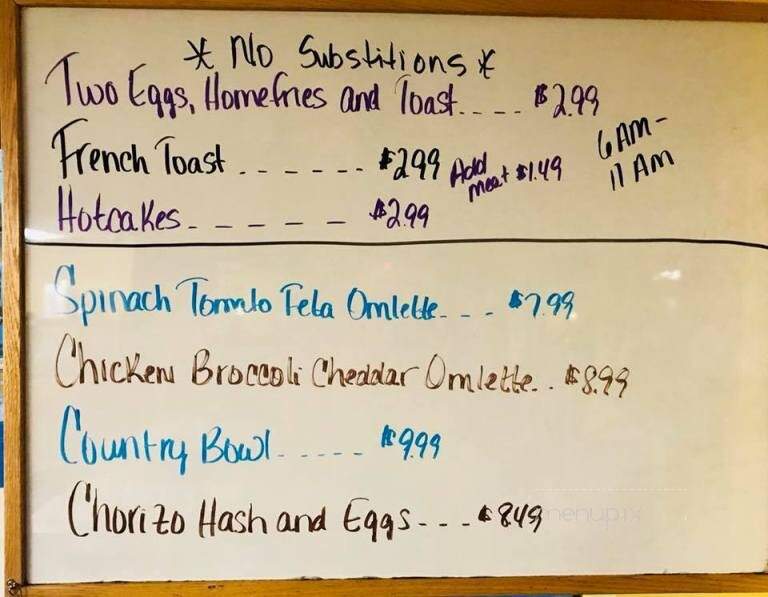 * No Substitions *
Two Eggs, Homefries and Toast.... $2.99
French Toast ------ $2.99 Add meat $1.49
6 AM-
11 AM
Hotcakes----- $2.99
Spinach Tomato Feta Omlette--- $7.99
Chicken Broccoli Cheddar Omlette.. $8.99
Country Bowl------ $9.99
Chorizo Hash and Eggs--- $8.49
menupix